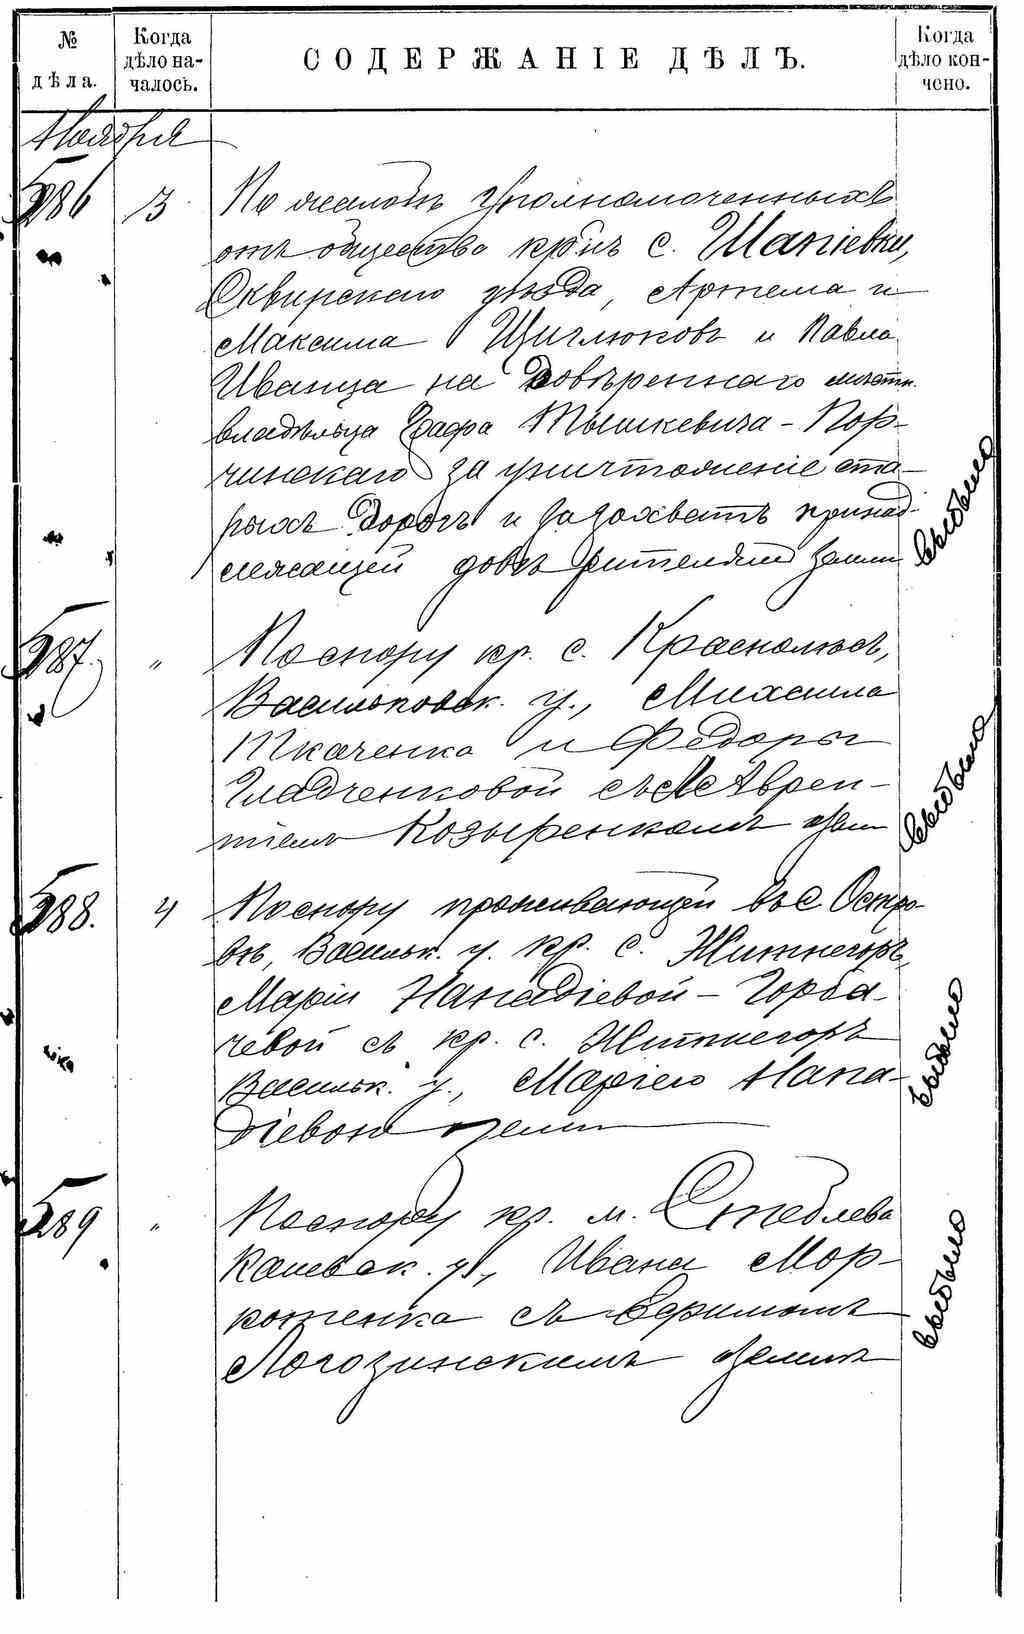 № дѣла.
Когда дѣло началось.
СОДЕРЖАНІЕ ДѢЛЪ.
Когда дѣло кончено.
Ноября
586 3 По жалобѣ уполномоченныхъ
отъ общества кр-нъ с. Шапіевки,
Сквирскаго уѣзда, Артема и
Максима Щиглюковъ и Павла
Иванца на довѣреннаго мѣстн.
владѣльца Графа Тышкевича - Кор-
чинскаго за уничтоженіе ста-
рыхъ дорогъ и за захватъ принад-
лежащей довѣрителямъ земли
выбыло
587. " По спору кр. с. Краснолѣсъ,
Васильковск. у., Михаила
Ткаченка и Федоры
Гладченковой съ Лаврен-
тіемъ Козыренкомъ земли
выбыло
588. 4 По спору проживающей въ с. Остро-
вѣ, Васильк. у. кр. с. Житнегоръ,
Маріи Нападіевой - Горба-
чевой съ кр. с. Житнегоръ
Васильк. у., Маріею Напа-
діевою земли
выбыло
589 " По спору кр. м. Стеблева
Каневск. у., Ивана Мор-
котенка съ Ефимомъ
Логозинскимъ земли
выбыло